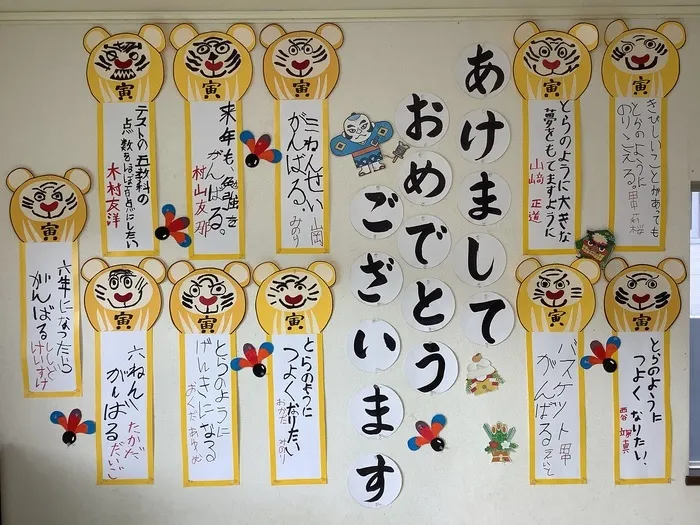 あけまして
おめでとう
ございます
寅
きびしいことがあっても
とらのように
のりこえる。
寅
とらのように大きな
夢をもてますように
山﨑 正道
寅
三ねんせい
がんばる、
みのり
寅
来年も勉強を
がんばる。
村山友那
寅
テストの五教科の
点数をほぼ百点にしたい
木村友洋
寅
とらのように
つよくなりたい!
西谷 颯真
寅
バスケット
がんばる
寅
とらのように
つよくなりたい
おかだ みのり
寅
とらのように
げんきになる
寅
六ねんがんばる
たかだ
だいご
寅
六年になったら
がんばる
ししど
けいすけ